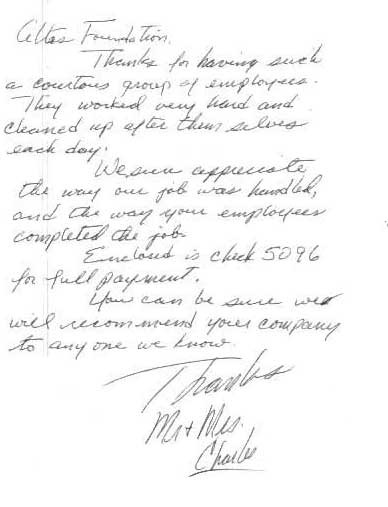 Atlas Foundation,
Thanks for having such
a courtous group of employees.
They worked very hard and
cleaned up after them selves
each day.
We sure appreciate
the way our job was handled,
and the way your employees
completed the job.
Enclosed is check 5096
for full payment.
You can be sure we
will recommend your company
to any one we know.
Thanks
Mr + Mrs.
Charles